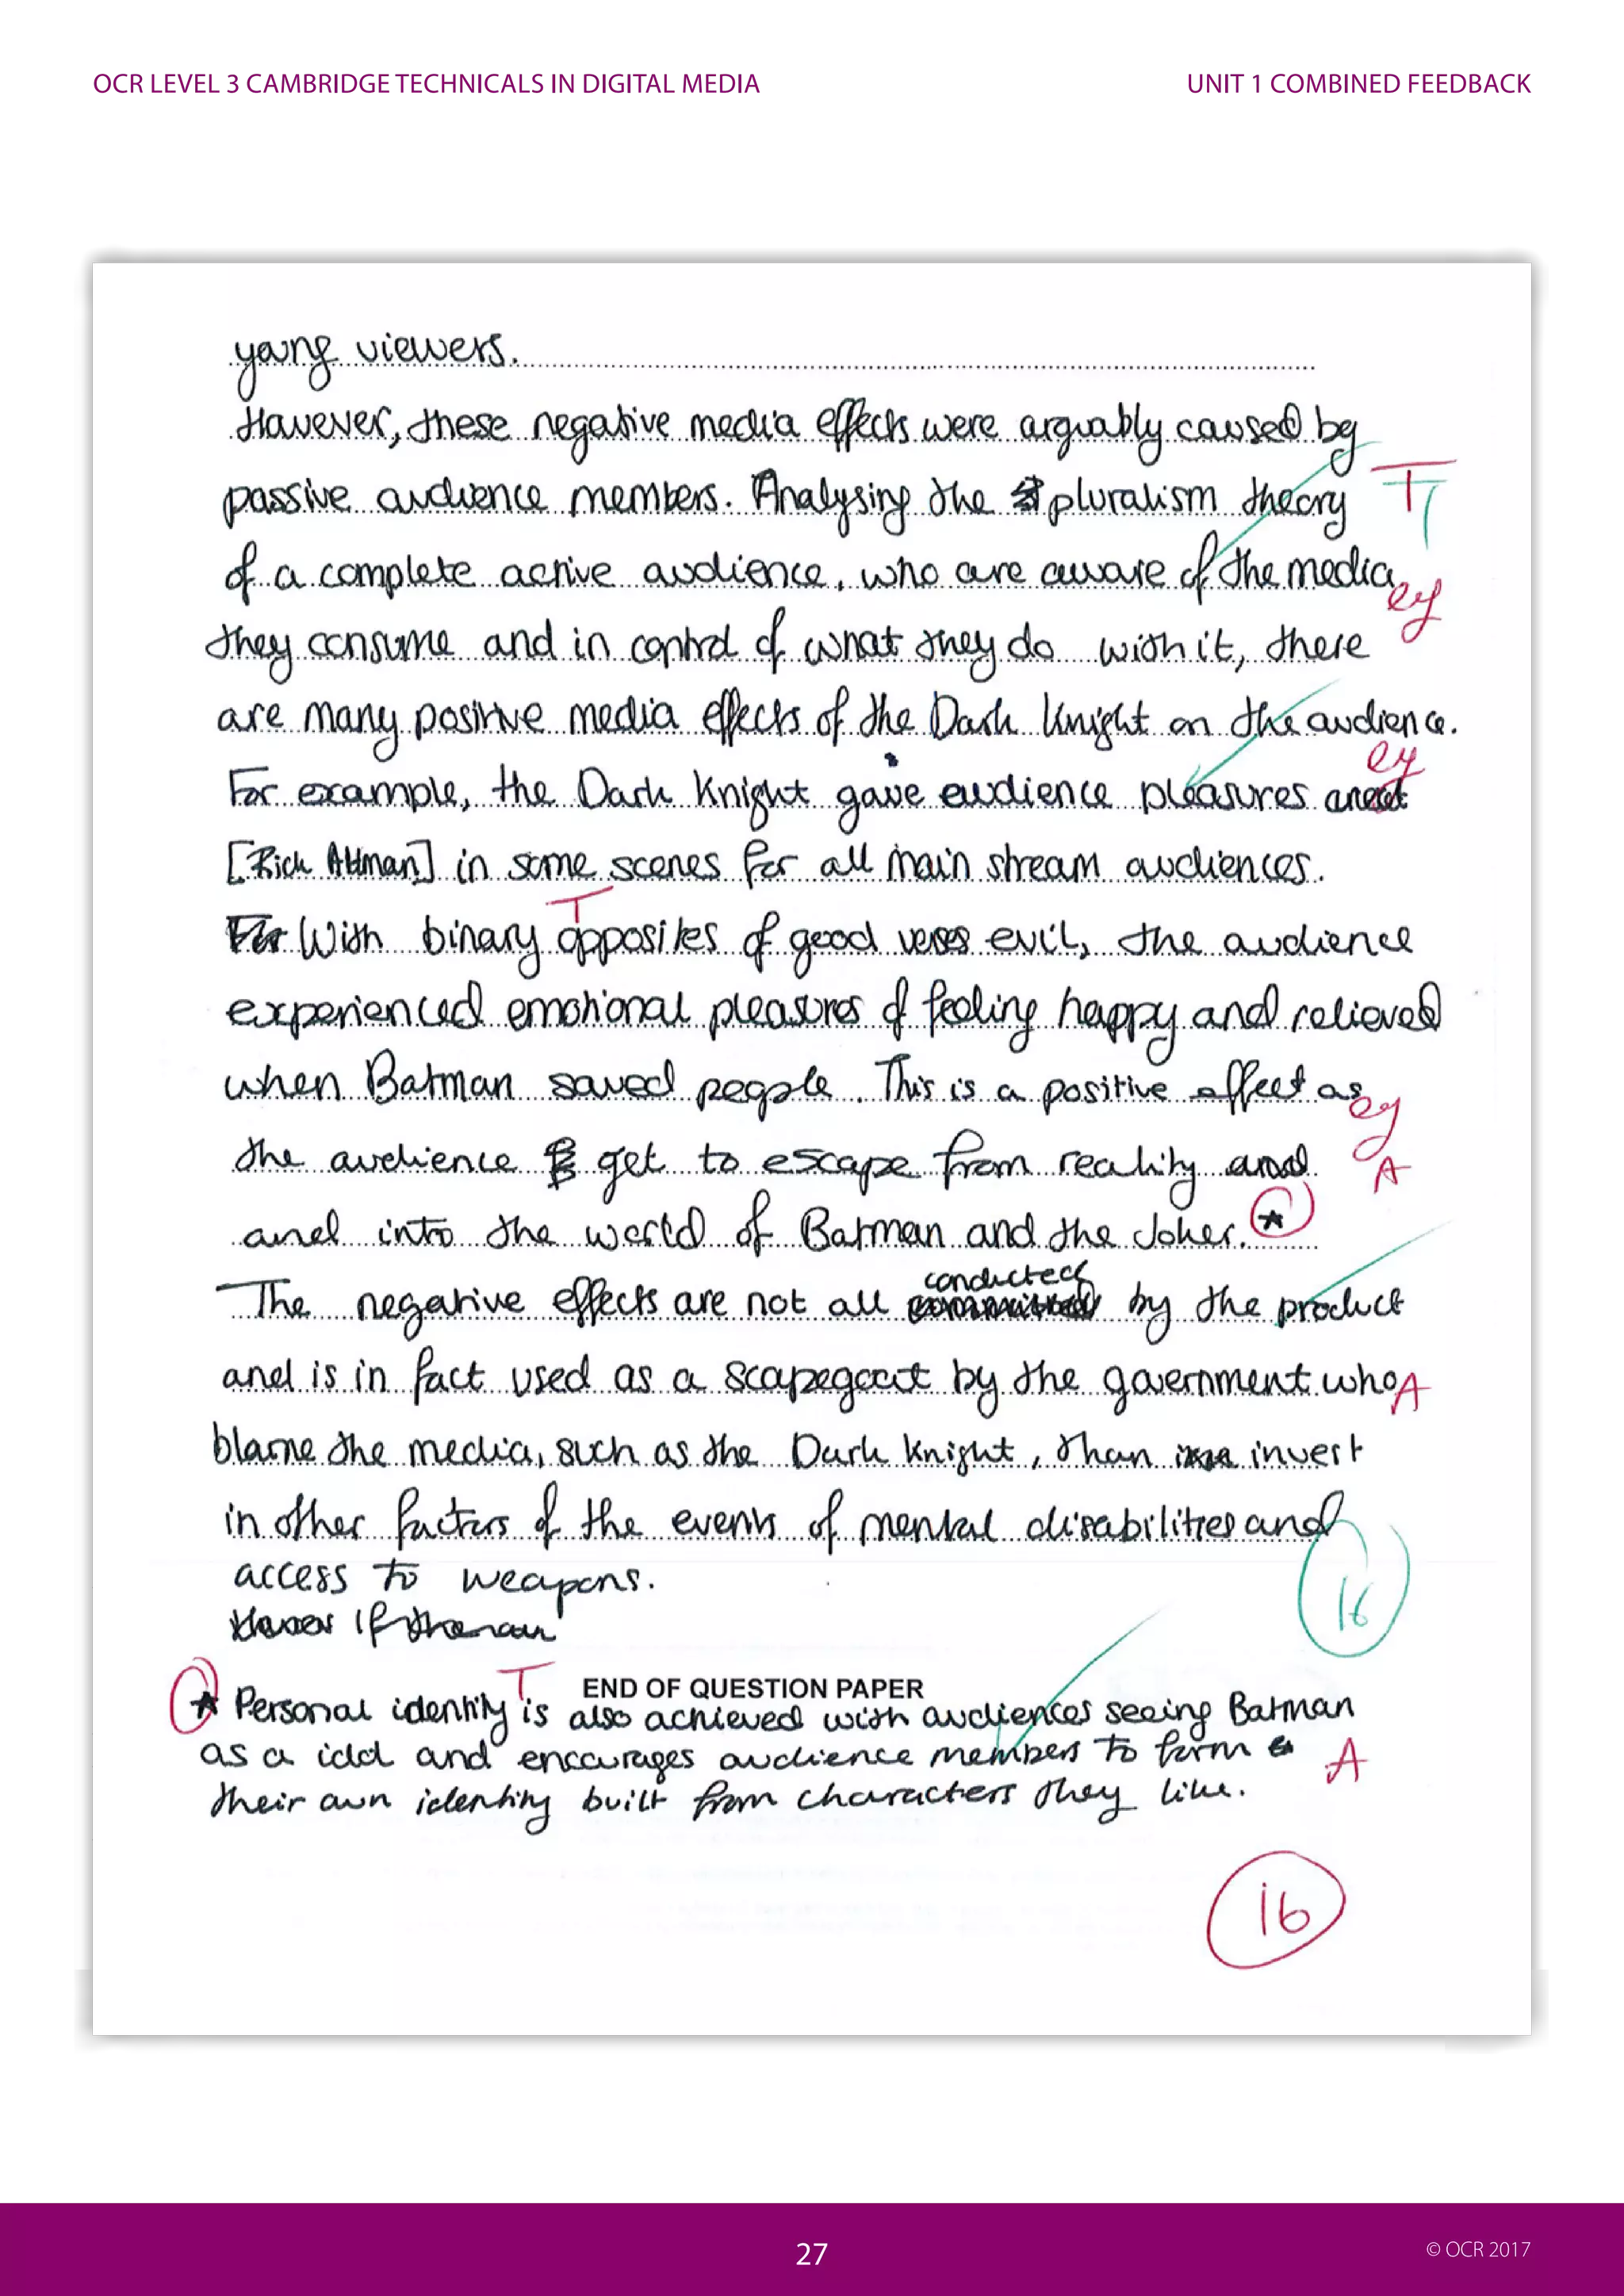 OCR LEVEL 3 CAMBRIDGE TECHNICALS IN DIGITAL MEDIA
UNIT 1 COMBINED FEEDBACK
young viewers.
However, these negative media effects were arguably caused by
passive audience members. Analysing the pluralism theory T T
of a complete active audience, who are aware of the media
eg
they consume and in control of what they do with it, there
are many positive media effects of the Dark Knight on the audience.
eg
For example, the Dark Knight gave audience pleasures
[Rick Altman] in some scenes for all main stream audiences.
T
With binary opposites of good verses evil, the audience
experienced emotional pleasures of feeling happy and relieved
when Batman saved people. This is a positive effect as
eg
the audience get to escape from reality
A
and into the world of Batman and the Joker. *
conducted
The negative effects are not all by the product
and is in fact used as a scapegoat by the government who A
blame the media, such as the Dark Knight, than invert
in other factors of the events of mental disabilities and
access to weapons.
16
If
T
END OF QUESTION PAPER
* Personal identity is also achieved with audiences seeing Batman
as a idol and encourages audience members to form A
their own identity built from characters they like.
16
27
© OCR 2017